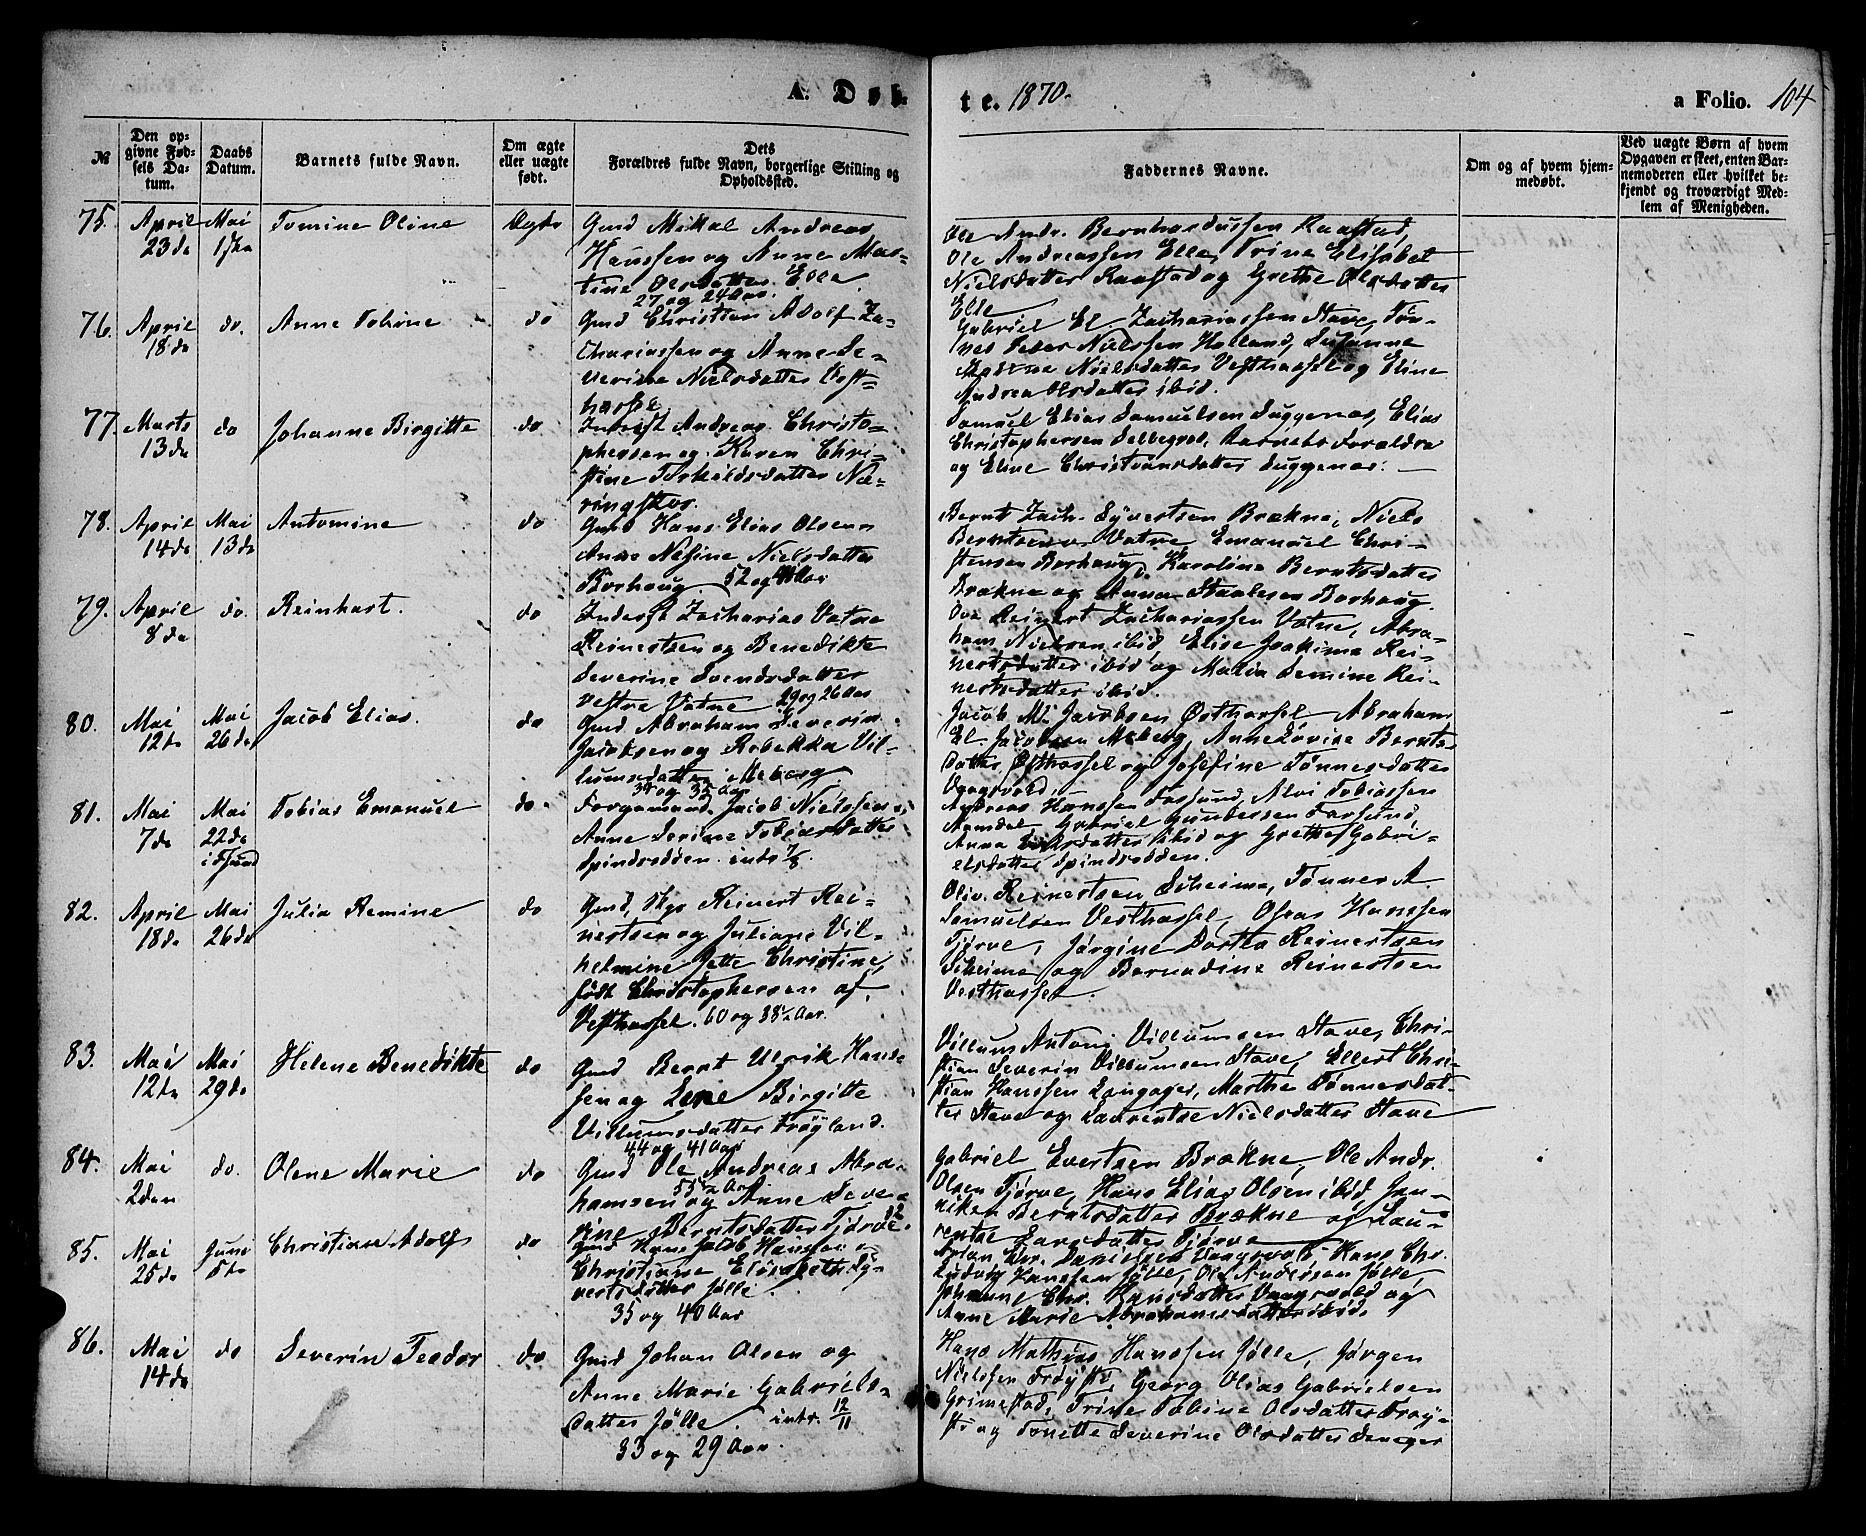 A. Døb-
te. 1870.
a Folio. 104
№
Den op-
givne Fød-
sels Da-
tum.
Daabs
Datum.
Barnets fulde Navn.
Om ægte
eller uægte
født.
Dets
Forældres fulde Navn, borgerlige Stilling og
Opholdssted.
Faddernes Navne.
Om og af hvem hjem-
medøbt.
Ved uægte Børn af hvem
Opgaven er skeet, enten Bar-
nemoderen eller hvilket be-
kjendt og troværdigt Med-
lem af Menigheden.
75. April Mai Tomine Oline Ægte Gmd Mikal Andreas
23de
Hanssen og Anne Mar-
tine Olsdatter Elle.
27 og 24 Aar.
Ole Andr. Bernhardussen Raastad,
Ole Andreassen Elle, Trine Elisabet
Nielsdatter Raastad og Grethe Olsdatter
Elle
76. April do. Anne Tobine do Gmd Christian Adolf Za-
18de
chariassen og Anne Se-
verine Nielsdatter Vest-
hassel
Gabriel El. Zachariassen Stave, Tøn-
nes Peder Nielssen Holland, Susanne
Nielsdatter Vesthassel og Eline
Andrea Olsdatter ibid.
77. Marts do Johanne Birgitte do Inderst Andreas Christo-
13de
phersen og Karen Chri-
stine Torkeldsdatter Næ-
ringstos.
Samuel Elias Samuelsen Duggenas, Elias
Christophersen Barnets Forældre
og Eline Christiansdatter Duggenas.
78. April Mai Antomine do Gmd Hans Elias Olsen
14de 13de
Anne Nielsdatter
Borhaug. 52 og Aar
Bernt Zach. Syvertsen Brækne, Niels
Berntsen Vatne Emanuel Chri-
stensen Borhaug, Karoline Berntsdatter
Brækne og Anna Borhaug.
79. April do. Reinhart. do Inderst Zacharias Vatne
8de
Reinertsen og Benedikte
Severine Svendsdatter
Vestre Vatne 29 og 26 Aar
Reinert Zachariassen Vatne, Abra-
ham Nielsen ibid, Elise Joakime Rei-
nertsdatter ibid og Malia Semine Rei-
nertsdatter ibid.
80. Mai Mai Jacob Elias. do Gmd Abraham Severin
12te 26de
Jacobsen og Rebekka Vil-
lumsdatter Meberg
34 og 35 Aar
Jacob M. Jacobsen Østhassel, Abraham
El. Jacobsen Meberg, Anne Lovise Bernts-
datter Østhassel og Josefine Tønnesdatter
Vaagsvold.
81. Mai Mai Tobias Emanuel do Jacob Nielssen
7de 22de
i Fsund
Anne Serine Tobiasdatter
Spindsodden. 7/8.
Andreas Hanssen Farsund, Alvi Tobiassen
Namdal, Gabriel Gundersen Farsund,
Anna ibid og Grethe Gabri-
elsdatter Spindsodden.
82. April Mai Julia Remine do Gmd, Reinert Rei-
18de 26de
nertsen og Juliane Vil-
helmine Jette Christine,
født Christophersen af
Vesthassel. 60 og 38½ Aar.
Oliv. Reinertsen Siheime, Tønnes A.
Samuelsen Vesthassel, Osras Hanssen
Tjørve, Jørgine Dortea Reinertsen
Siheime og Bernadine Reinertsen
Vesthassel.
83. Mai Mai Helene Benedikte do Gmd Bernt Ulrik Hans-
12te 29de
sen og Lene Birgitte
Villumsdatter Frøyland.
44 og 41 Aar
Villum Anton Villumsen Stave, Chri-
stian Severin Villumsen Stave, Ellert Chri-
stian Hanssen Langager, Marthe Tønnesdat-
ter Stave og Laurentse Nielsdatter Stave
84. Mai do. Olene Marie do Gmd Ole Andreas Abra-
2den
hamsen og Anne Seve-
rine Berntsdatter Tjørve.
Gabriel Evertsen Brækne, Ole Andr.
Olsen Tjørve, Hans Elias Olsen ibid, Jan-
niken Berntsdatter Brækne og Lau-
rentse Larsdatter Tjørve
85. Mai Juni Christian Adolf do Gmd Hans Jacob Hanssen
25de 5te
Christiane Elisabeth Sy-
vertsdatter Jølle.
35 og 40 Aar
Chr. Danielsen Vaagsvold, Hans Chr.
Ludvig Hanssen Jølle, Ole Andersen Jølle,
Johanne Chr. Hansdatter Vaagsvold og
Anne Marie Abrahamsdatter ibid.
86. Mai do Severin Teodor do. Gmd Johan Olsen og
14de
Anne Marie Gabriels-
datter Jølle. intr. 12/11
33 og 29 Aar.
Hans Mathias Hanssen Jølle, Jørgen
Nielssen Frøystø, Georg Olias Gabrielsen
Grimestad, Trine Tobine Olsdatter Frøy-
stø og Tonette Severine Olsdatter